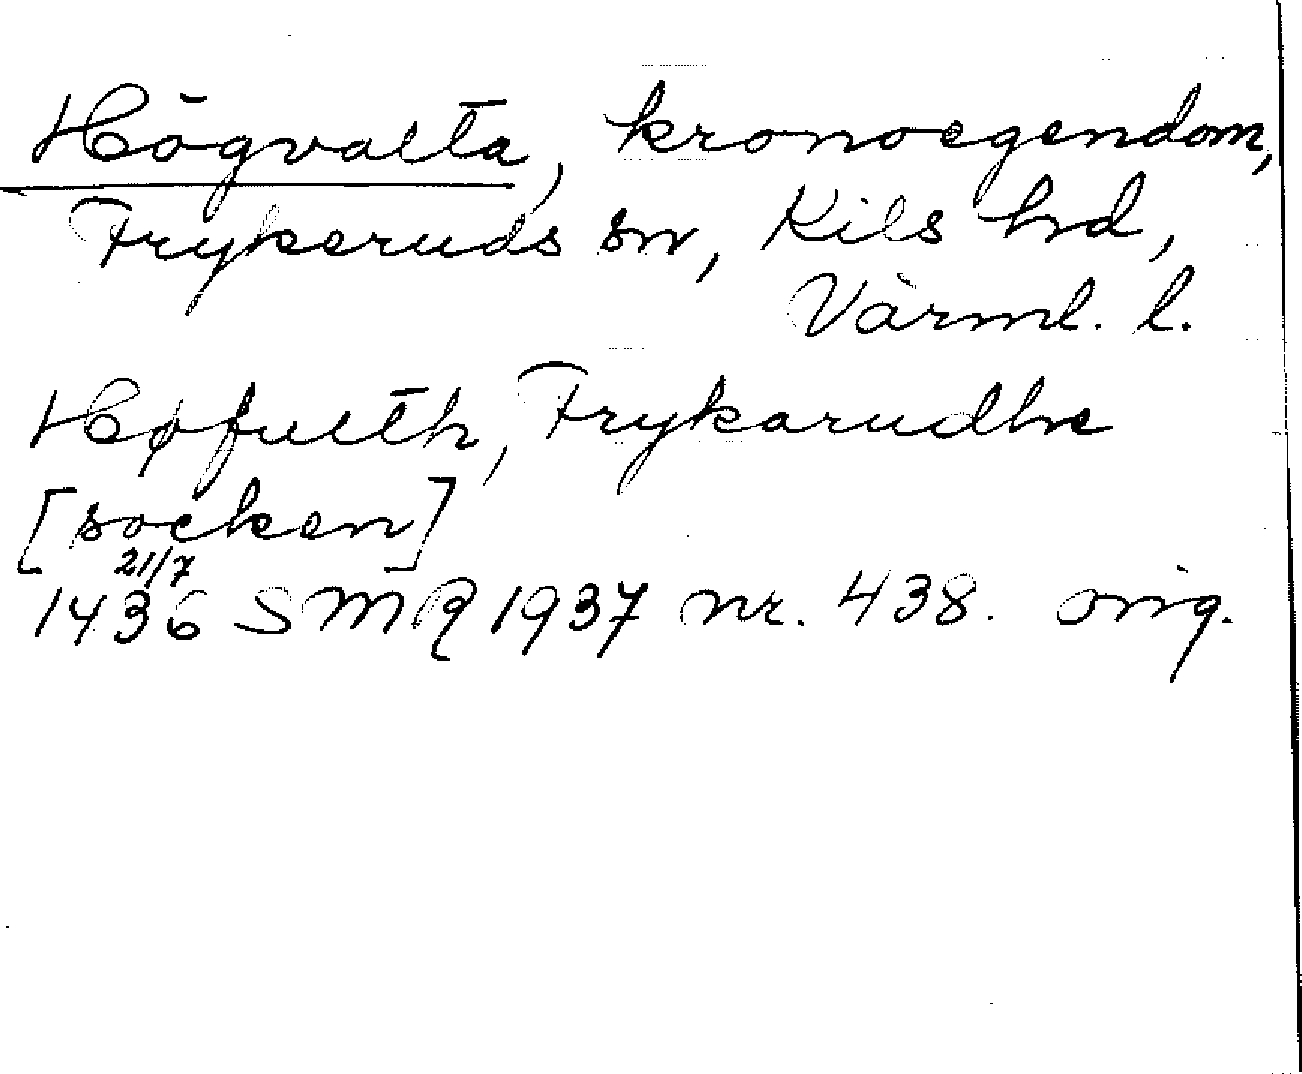 Högvalta, kronoegendom,
Frykeruds sn, Kils hd,
Värml. l.
Høfulth, Frykarudhe
[socken]
21/7
1436 SMR 1937 nr. 438. orig.